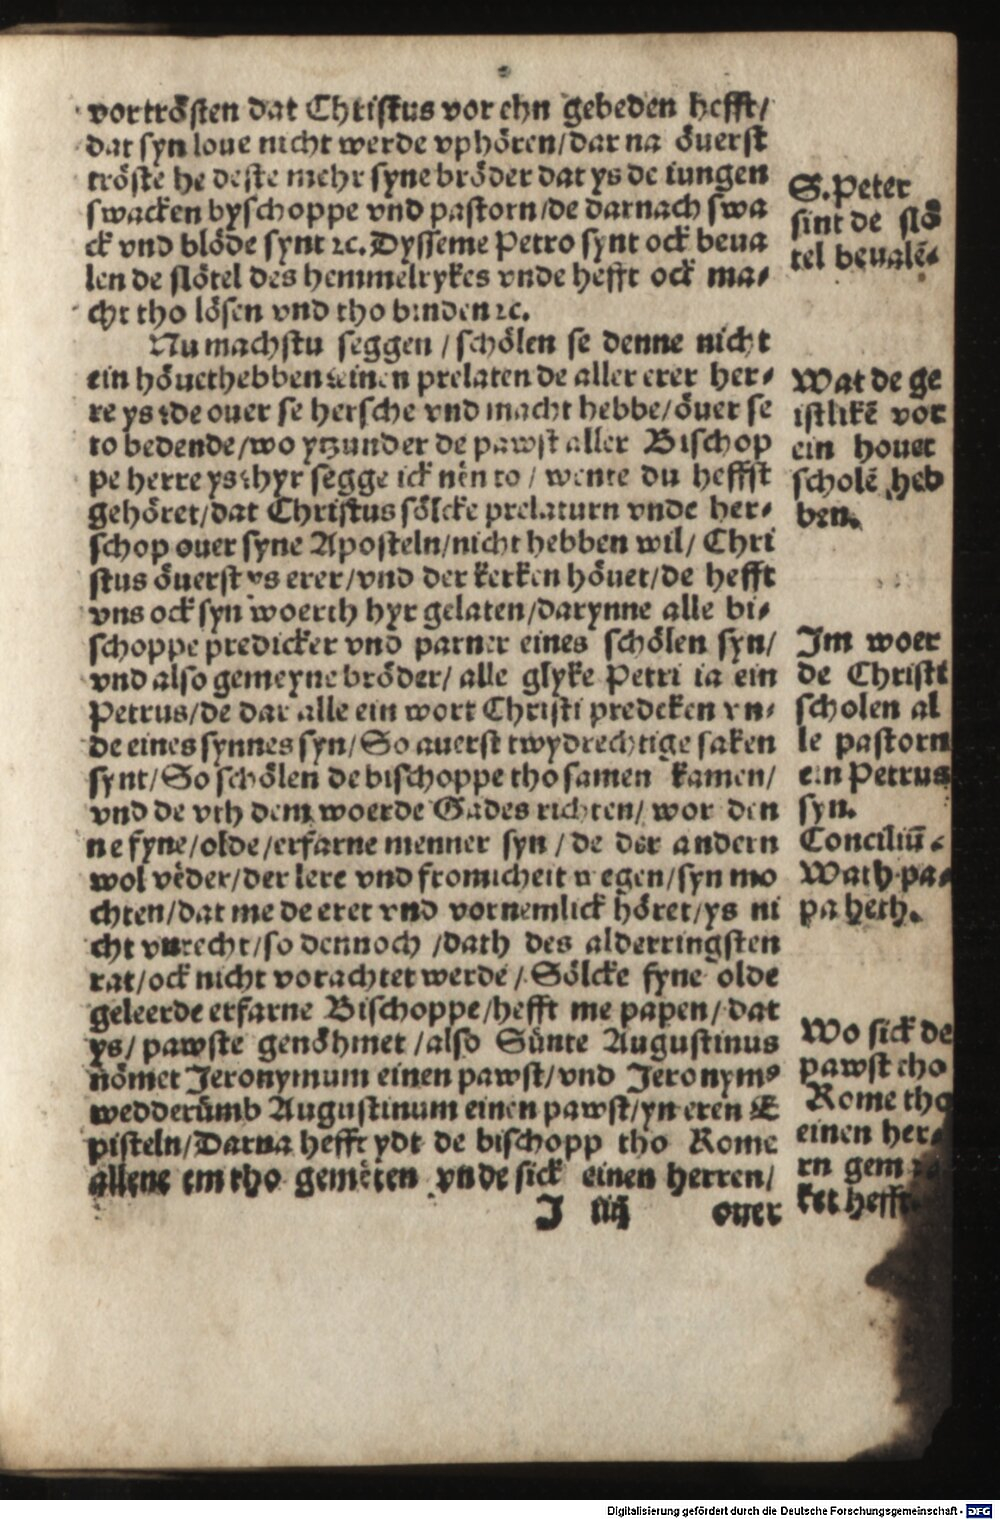 vortrösten dat Christus vor ehn gebeden hefft/
dat syn loue nicht werde vphören/dar na öuerst
tröste he deste mehr syne bröder dat ys de iungen
swacken byschoppe vnd pastorn/de darnach swa
ck vnd blöde synt ꝛc. Dysseme Petro synt ock beua
len de slötel des hemmelrykes vnde hefft ock ma⸗
cht tho lösen vnd tho binden ꝛc.
Nu machstu seggen / schölen se denne nicht
ein höuet hebben einen prelaten de aller erer her⸗
re ys de ouer se hersche vnd macht hebbe/öuer se
to bedende/wo ytzunder de pawst aller Bischop
pe herre ys hyr segge ick nên to / wente du heffst
gehöret/dat Christus sölcke prelaturn vnde her⸗
schop ouer syne Aposteln/nicht hebben wil/ Chri
stus öuerst ys erer/vnd der kerken höuet/de hefft
vns ock syn woerth hyr gelaten/darynne alle bi⸗
schoppe predicker vnd parner eines schölen syn/
vnd also gemeyne bröder/ alle glyke Petri ia ein
Petrus/de dar alle ein wort Christi predeken vn⸗
de eines synnes syn/So auerst twydrechtige saken
synt/So schölen de bischoppe tho samen kamen/
vnd de vth dem woerde Gades richten/ wor den
ne fyne/olde/erfarne menner syn / de der andern
wol vêder/der lere vnd fromicheit wegen/syn mo
chten/dat me de eret vnd vornemlick höret/ys ni
cht vnrecht/so dennoch /dath des alderringsten
rat/ock nicht vorachtet werde/ Sölcke fyne olde
geleerde erfarne Bischoppe/hefft me papen/ dat
ys/ pawste genöhmet /also Sünte Augustinus
nömet Jeronymum einen pawst/vnd Jeronymꝰ
wedderümb Augustinum einen pawst/yn eren E
pisteln/Darna hefft ydt de bischopp tho Rome
allene em tho gemêten vnde sick einen herren/
J iiij ouer
S. Peter
sint de slö
tel beualē⸗
Wat de ge
istlikē vor
ein houet
scholē heb
ben.
Im woer
de Christi
scholen al
le pastorn
ein Petrus
syn.
Conciliū⸗
Wath pa⸗
pa heth.
Wo sick de
pawst tho
Rome tho
einen her⸗
rn gema
ket hefft.
Digitalisierung gefördert durch die Deutsche Forschungsgemeinschaft - DFG